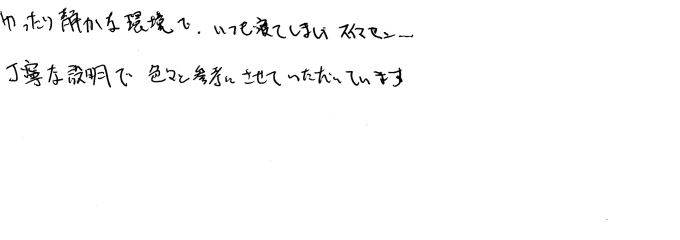 ゆったり静かな環境で、いつも寝てしまい スイマセン…
丁寧な説明で 色々と参考にさせていただいています